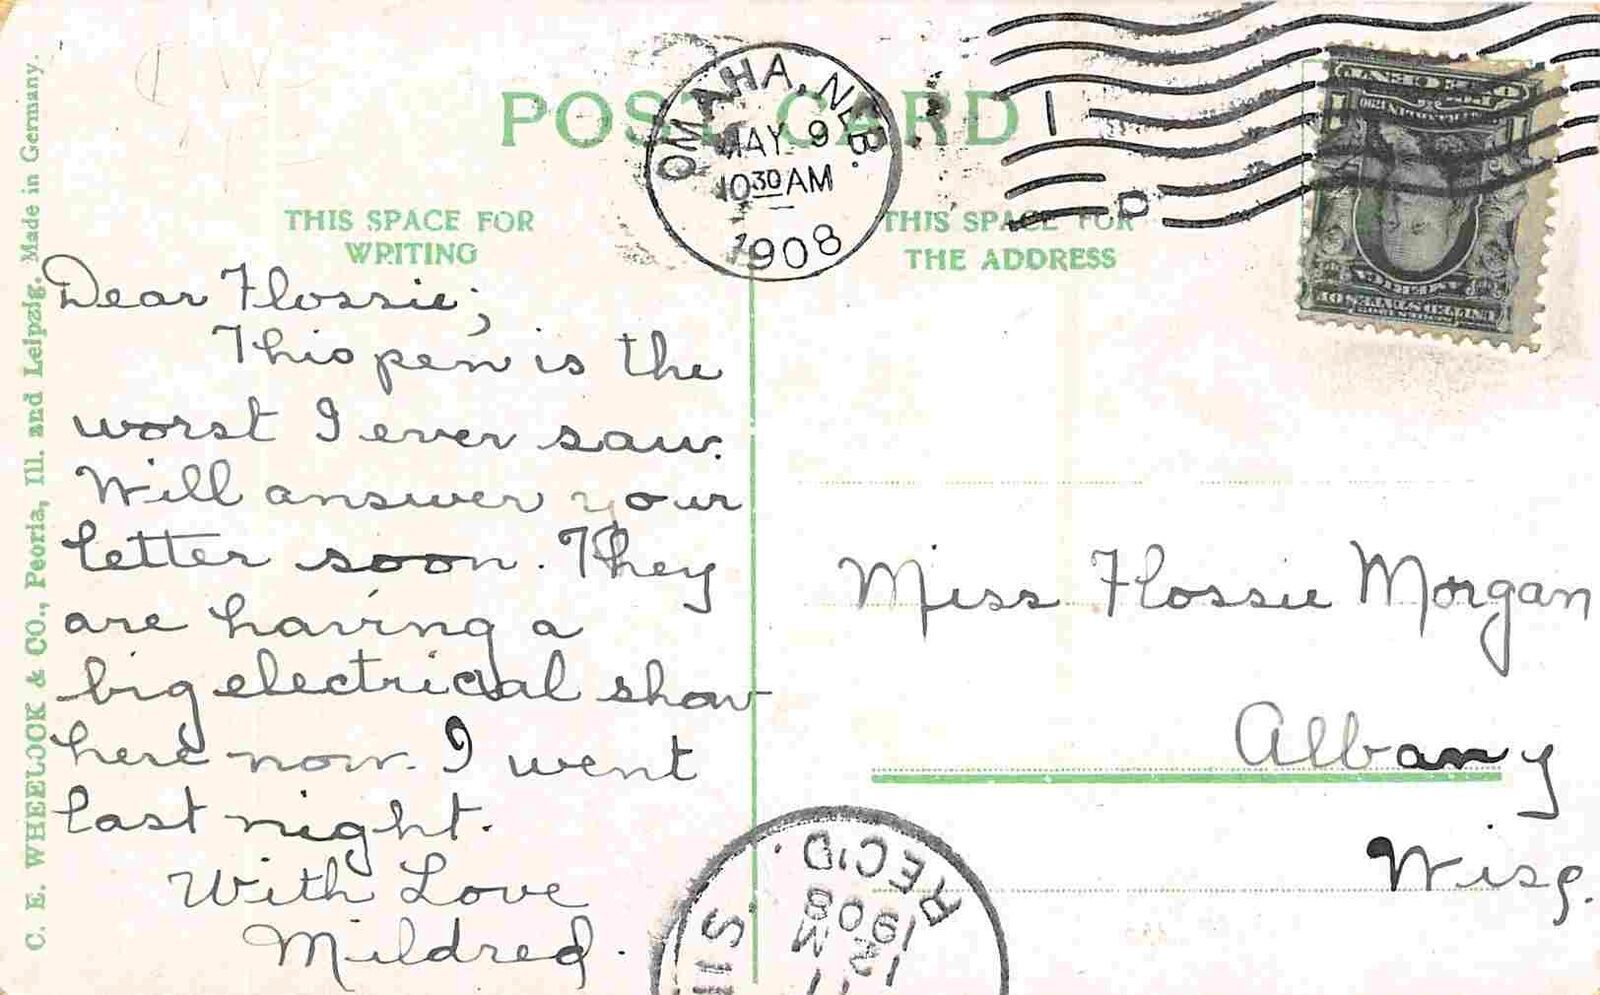 POST CARD
OMAHA, NEB.
MAY 9
10 30 AM
1908
THIS SPACE FOR
WRITING
THIS SPACE FOR
THE ADDRESS
C. E. WHEELOCK & CO., Peoria, Ill. and Leipzig. Made in Germany.
Dear Flossie;
This pen is the
worst I ever saw.
Will answer your
letter soon. They
are having a
big electrical show
here now. I went
last night.
With Love
Mildred.
Miss Flossie Morgan
Albany
Wisc.
REC'D.
1908